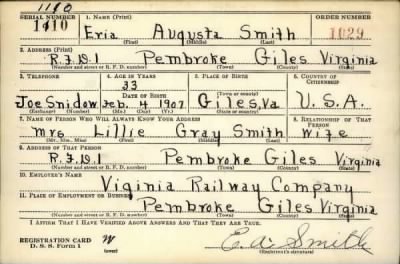 1110
SERIAL NUMBER 1. NAME (Print) ORDER NUMBER
1410 Evia Augusta Smith 1029
(First) (Middle) (Last)
2. ADDRESS (Print)
R.F.D.1 Pembroke Giles Virginia
(Number and street or R. F. D. number) (Town) (County) (State)
3. TELEPHONE 4. AGE IN YEARS 5. PLACE OF BIRTH 6. COUNTRY OF CITIZENSHIP
33
DATE OF BIRTH (Town or county)
Joe Snidow Feb. 4 1907 Giles, Va U.S.A.
(Exchange) (Number) (Mo.) (Day) (Yr.) (State or country)
7. NAME OF PERSON WHO WILL ALWAYS KNOW YOUR ADDRESS 8. RELATIONSHIP OF THAT PERSON
Mrs Lillie Gray Smith Wife
(Mr., Mrs., Miss) (First) (Middle) (Last)
9. ADDRESS OF THAT PERSON
R.F.D.1 Pembroke Giles Virginia
(Number and street or R. F. D. number) (Town) (County) (State)
10. EMPLOYER'S NAME
Viginia Railway Company
11. PLACE OF EMPLOYMENT OR BUSINESS
Pembroke Giles Virginia
(Number and street or R. F. D. number) (Town) (County) (State)
I AFFIRM THAT I HAVE VERIFIED ABOVE ANSWERS AND THAT THEY ARE TRUE.
REGISTRATION CARD
D. S. S. Form 1 (over) W E. A. Smith
(Registrant's signature)